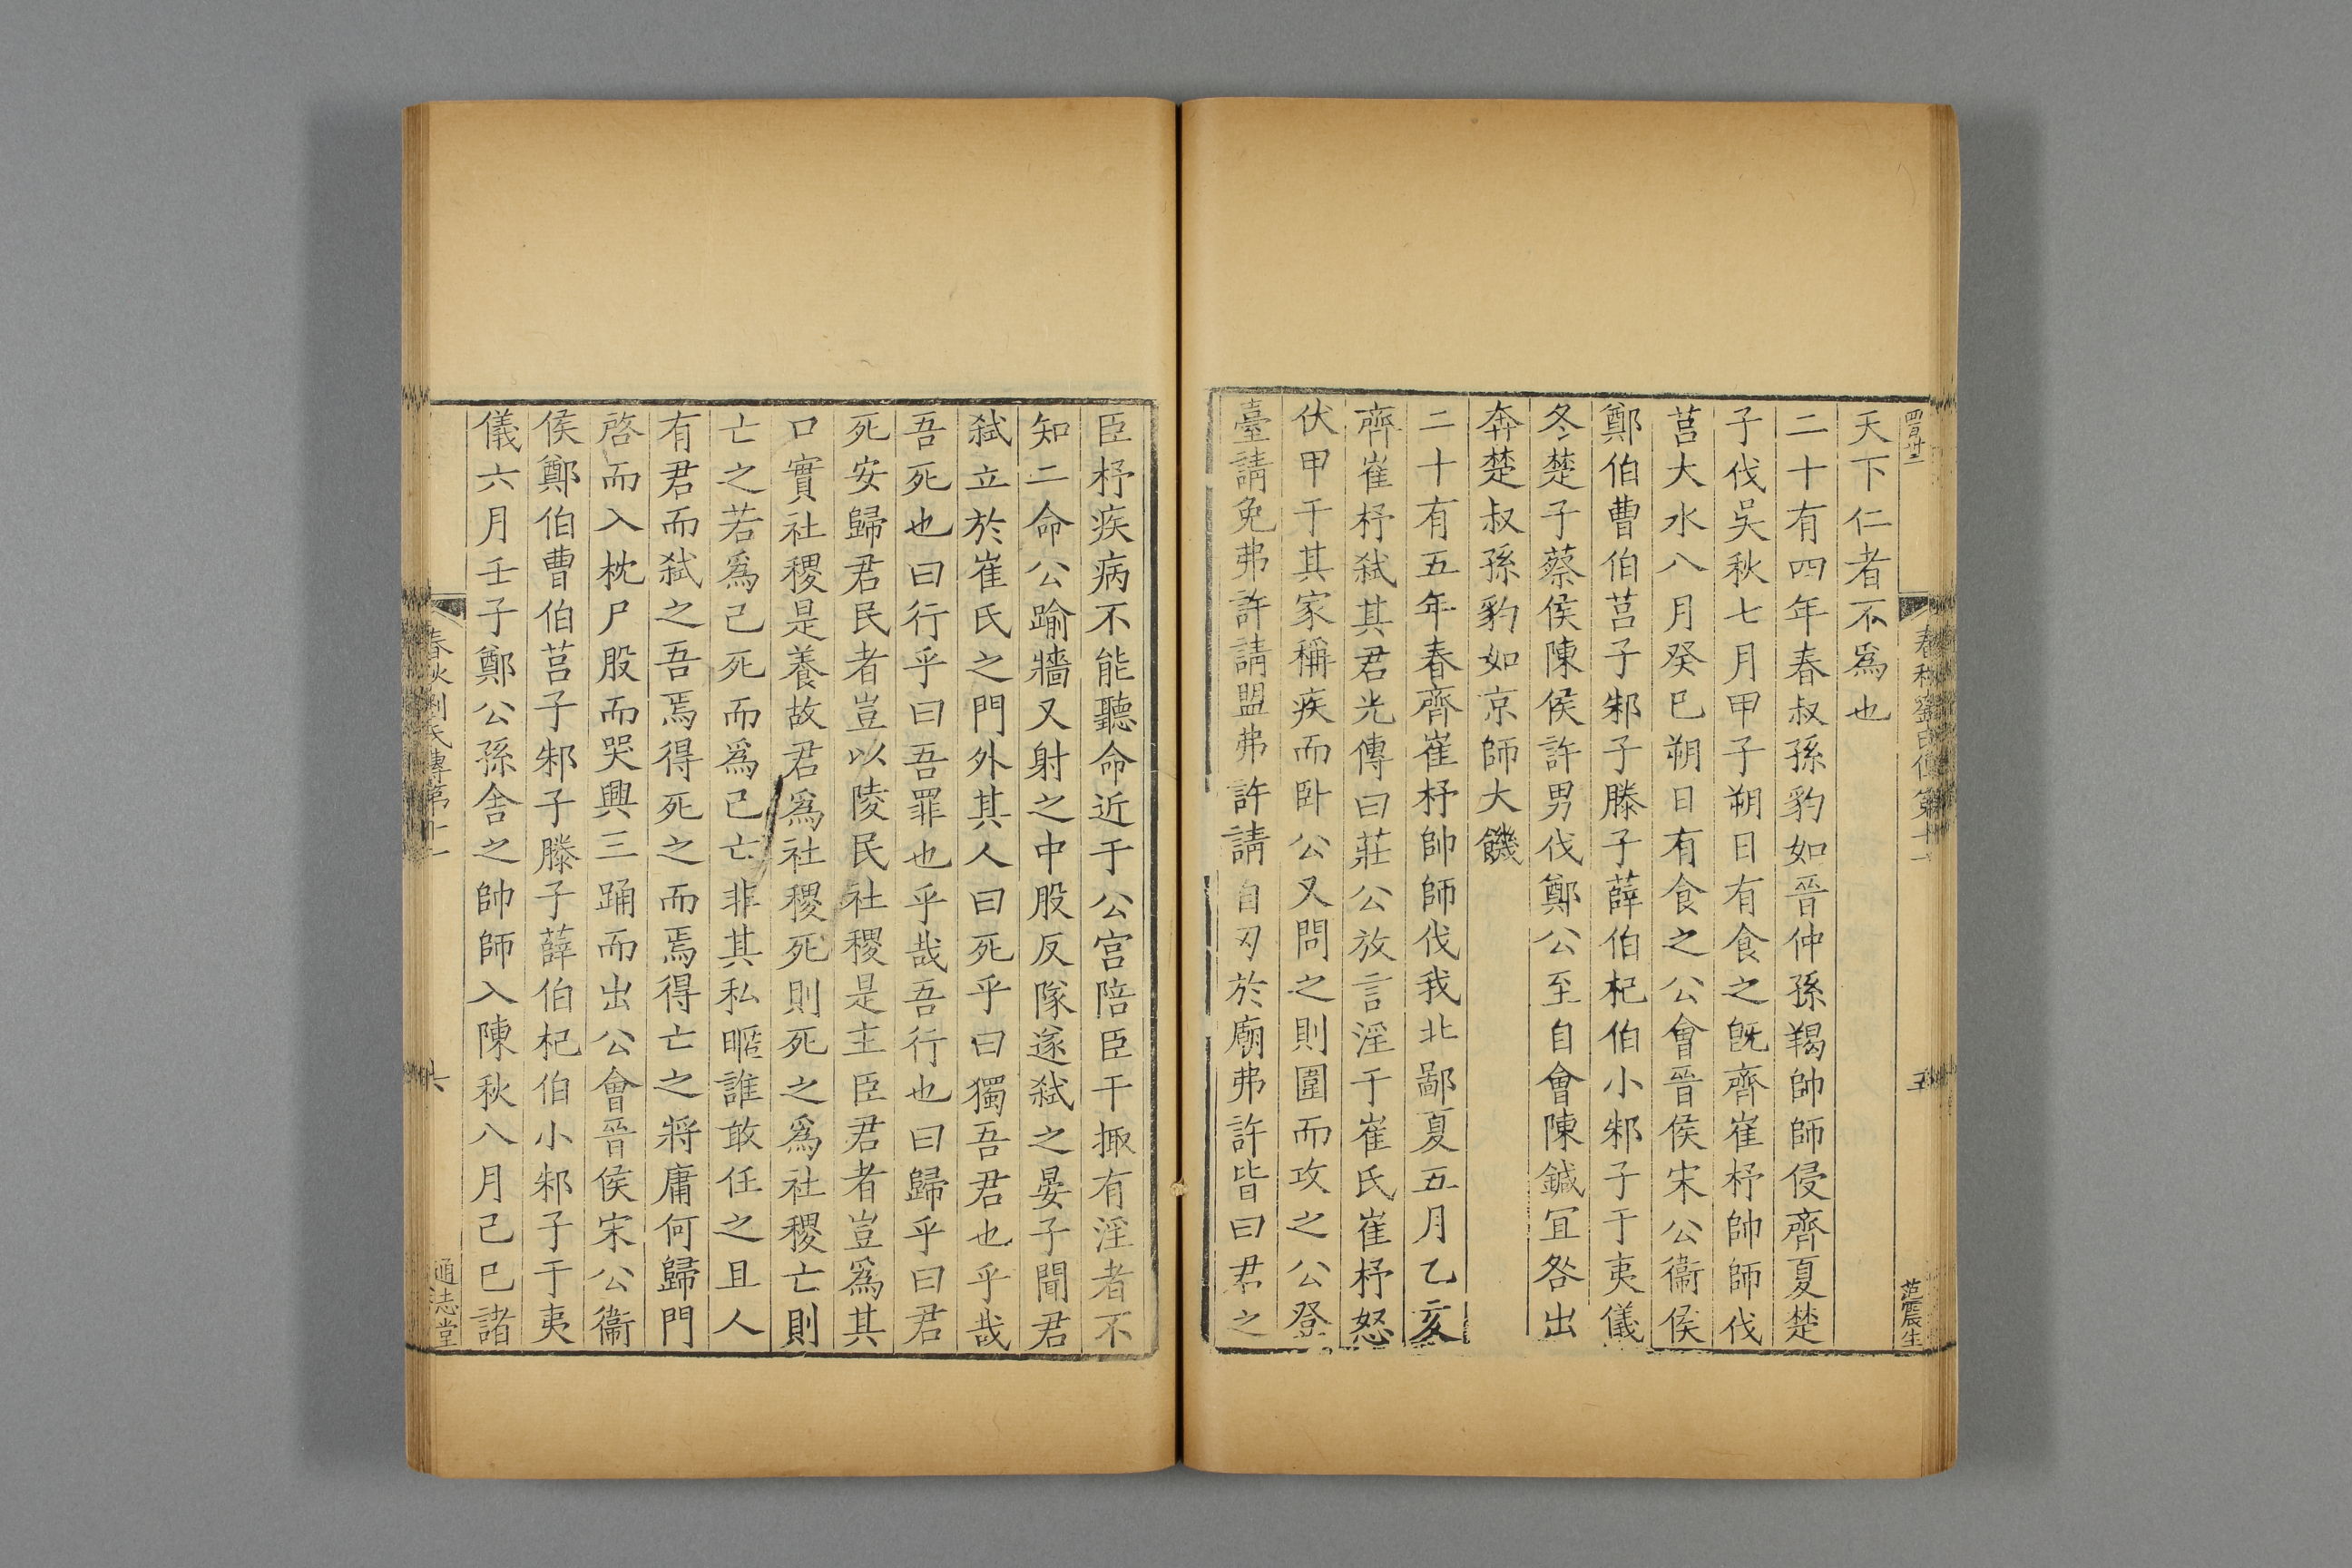 天下仁者不爲也
二十有四年春叔孫豹如晉仲孫羯帥師侵齊夏楚
子伐吳秋七月甲子朔日有食之旣齊崔杼帥師伐
莒大水八月癸巳朔日有食之公會晉侯宋公衞侯
鄭伯曹伯莒子邾子滕子薛伯杞伯小邾子于夷儀
冬楚子蔡侯陳侯許男伐鄭公至自會陳鍼宜咎出
奔楚叔孫豹如京師大饑
二十有五年春齊崔杼帥師伐我北鄙夏五月乙亥
齊崔杼弑其君光傳曰莊公放言淫于崔氏崔杼怒
伏甲于其家稱疾而卧公又問之則圍而攻之公登
臺請免弗許請盟弗許請自刃於廟弗許皆曰君之
臣杼疾病不能聽命近于公宫陪臣干掫有淫者不
知二命公踰牆又射之中股反隊遂弑之晏子聞君
弑立於崔氏之門外其人曰死乎曰獨吾君也乎哉
吾死也曰行乎曰吾罪也乎哉吾行也曰歸乎曰君
死安歸君民者豈以陵民社稷是主臣君者豈爲其
口實社稷是養故君爲社稷死則死之爲社稷亡則
亡之若爲己死而爲己亡非其私暱誰敢任之且人
有君而弑之吾焉得死之而焉得亡之將庸何歸門
啓而入枕尸股而哭興三踊而出公會晉侯宋公衞
侯鄭伯曹伯莒子邾子滕子薛伯杞伯小邾子于夷
儀六月壬子鄭公孫舍之帥師入陳秋八月己巳諸
春秋劉氏傳第十一
六
通志堂
春秋劉氏傳第十一
五
范震生